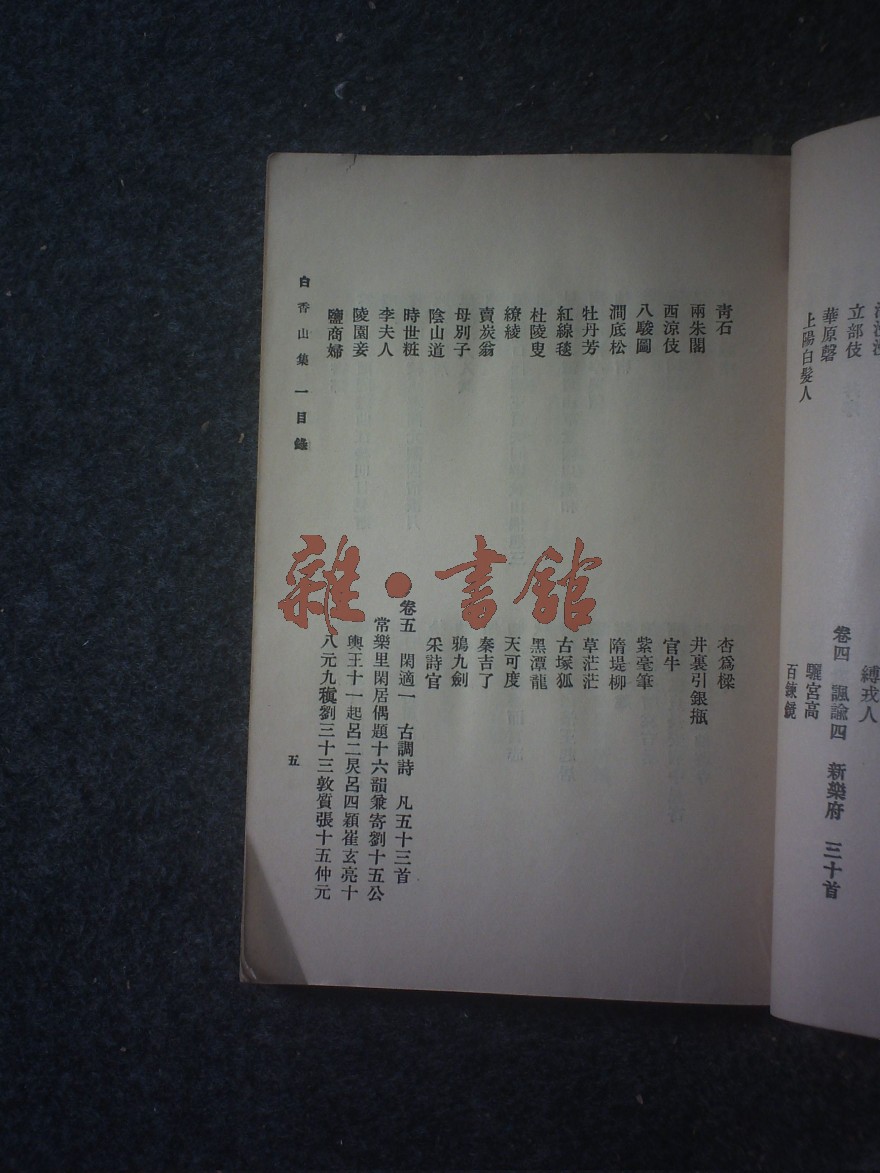 立部伎
華原磬
上陽白髮人
縛戎人
卷四 諷諭四 新樂府 三十首
驪宮高
百鍊鏡
青石
兩朱閣
西涼伎
八駿圖
澗底松
牡丹芳
紅線毯
杜陵叟
繚綾
賣炭翁
母別子
陰山道
時世粧
李夫人
陵園妾
鹽商婦
杏為樑
井裏引銀瓶
官牛
紫毫筆
隋堤柳
草茫茫
古塚狐
黑潭龍
天可度
秦吉了
鴉九劍
采詩官
卷五 閑適一 古調詩 凡五十三首
常樂里閑居偶題十六韻兼寄劉十五公
輿王十一起呂二炅呂四穎崔玄亮十
八元九稹劉三十三敦質張十五仲元
白香山集 一 目錄
五
雜·書館